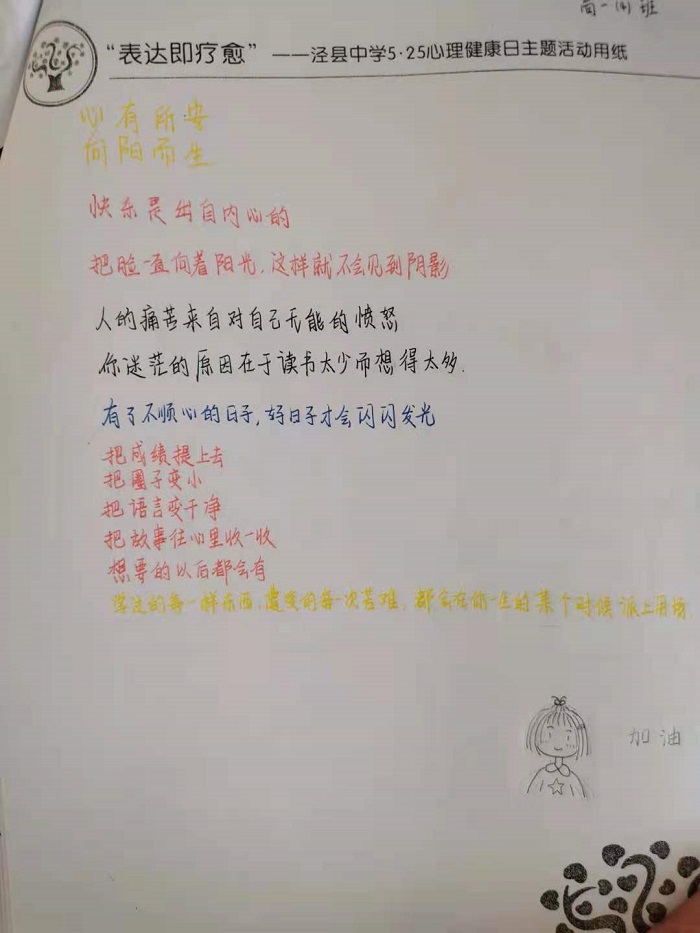 高一(4)班
“表达即疗愈”——泾县中学5·25心理健康日主题活动用纸
心有所安
向阳而生
快乐是出自内心的
把脸一直向着阳光,这样就不会见到阴影
人的痛苦来自对自己无能的愤怒
你迷茫的原因在于读书太少而想得太多.
有了不顺心的日子,好日子才会闪闪发光
把成绩提上去
把圈子变小
把语言变干净
把故事往心里收一收
想要的以后都会有
学过的每一样东西,遭受的每一次苦难,都会在你一生的某个时候派上用场.
加油